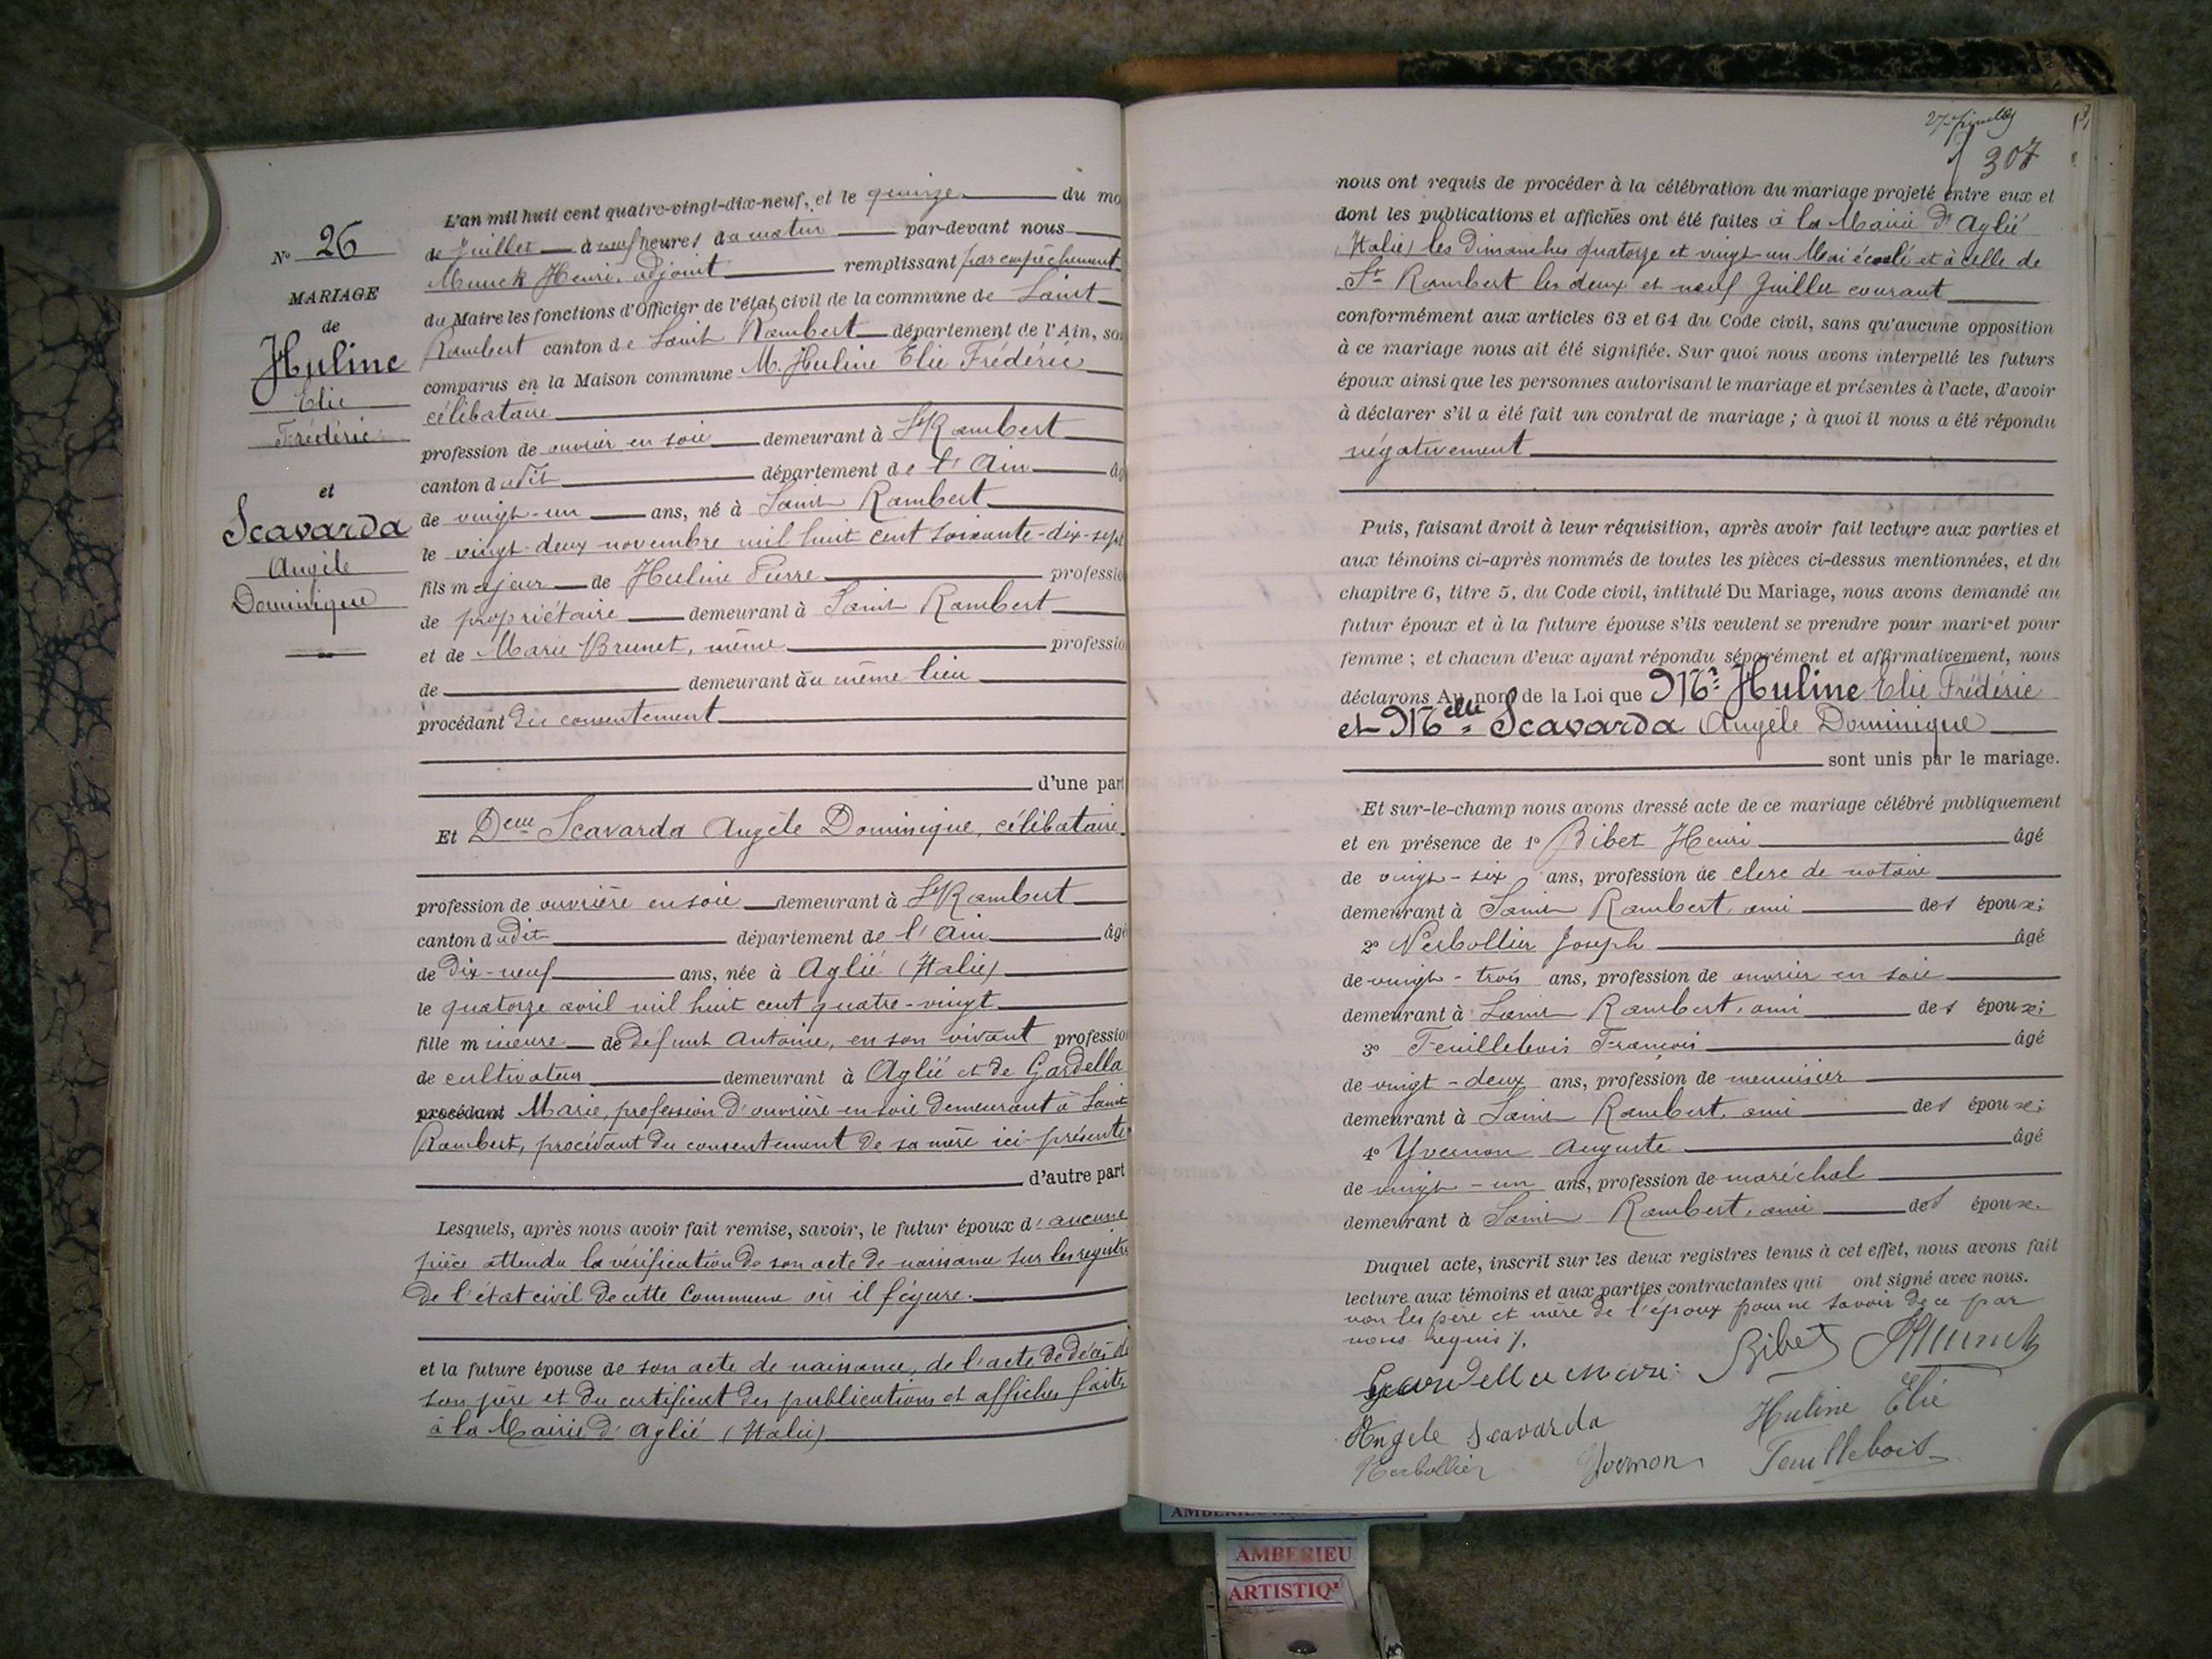 L'an mil huit cent quatre-vingt-dix-neuf, et le quinze du mo
de Juillet à neuf heures du matin par-devant nous
Munck Henri, adjoint remplissant par empêchement
du Maire les fonctions d'Officier de l'état civil de la commune de Saint
Rambert canton de Saint Rambert département de l'Ain, son
comparus en la Maison commune M. Huline Elie Frédéric
célibataire
profession de ouvrier en soie demeurant à St Rambert
canton dudit département de l'Ain âg
de vingt-un ans, né à Saint Rambert
le vingt-deux novembre mil huit cent soixante-dix-sept
fils majeur de Huline Pierre professio
de propriétaire demeurant à Saint Rambert
et de Marie Brunet, même professio
de demeurant au même lieu
procédant du consentement
d'une part
Et Delle Scavarda Angèle Dominique, célibataire
profession de ouvrière en soie demeurant à St Rambert
canton dudit département de l'Ain âgé
de dix-neuf ans, née à Aglié (Italie)
le quatorze avril mil huit cent quatre-vingt
fille mineure de défunt Antoine, en son vivant professio
de cultivateur demeurant à Aglié et de Gardella
procédant Marie, profession d'ouvrière en soie demeurant à Saint
Rambert, procédant du consentement de sa mère ici présente
d'autre part
Lesquels, après nous avoir fait remise, savoir, le futur époux d'aucune
pièce attendu la vérification de son acte de naissance sur les registres
de l'état civil de cette Commune où il figure.
et la future épouse de son acte de naissance, de l'acte de décès de
son père et du certificat des publications et affiches faites
à la Mairie d'Aglié (Italie)
No 26
MARIAGE
de
Huline
Elie
Frédéric
et
Scavarda
Angèle
Dominique
307
nous ont requis de procéder à la célébration du mariage projeté entre eux et
dont les publications et affiches ont été faites à la Mairie d'Aglié
(Italie) les dimanches quatorze et vingt-un Mai écoulé et à celle de
St Rambert les deux et neuf Juillet courant
conformément aux articles 63 et 64 du Code civil, sans qu'aucune opposition
à ce mariage nous ait été signifiée. Sur quoi nous avons interpellé les futurs
époux ainsi que les personnes autorisant le mariage et présentes à l'acte, d'avoir
à déclarer s'il a été fait un contrat de mariage ; à quoi il nous a été répondu
négativement
Puis, faisant droit à leur réquisition, après avoir fait lecture aux parties et
aux témoins ci-après nommés de toutes les pièces ci-dessus mentionnées, et du
chapitre 6, titre 5, du Code civil, intitulé Du Mariage, nous avons demandé au
futur époux et à la future épouse s'ils veulent se prendre pour mari et pour
femme ; et chacun d'eux ayant répondu séparément et affirmativement, nous
déclarons Au nom de la Loi que Mr Huline Elie Frédéric
et Melle Scavarda Angèle Dominique
sont unis par le mariage.
Et sur-le-champ nous avons dressé acte de ce mariage célébré publiquement
et en présence de 1° Bibet Henri âgé
de vingt-six ans, profession de clerc de notaire
demeurant à Saint Rambert, ami des époux;
2° Nerbollier Joseph âgé
de vingt-trois ans, profession de ouvrier en soie
demeurant à Saint Rambert, ami des époux;
3° Feuillebois François âgé
de vingt-deux ans, profession de menuisier
demeurant à Saint Rambert, ami des époux;
4° Yvernon Auguste âgé
de vingt-un ans, profession de maréchal
demeurant à Saint Rambert, ami des époux.
Duquel acte, inscrit sur les deux registres tenus à cet effet, nous avons fait
lecture aux témoins et aux parties contractantes qui ont signé avec nous.
non les père et mère de l'époux pour ne savoir de ce par
nous requis /.
Gardella Marie Bibet HMunck
Angele Scavarda Huline Elie
Nerbollier Yvernon Feuillebois
AMBERIEU
ARTISTIQ